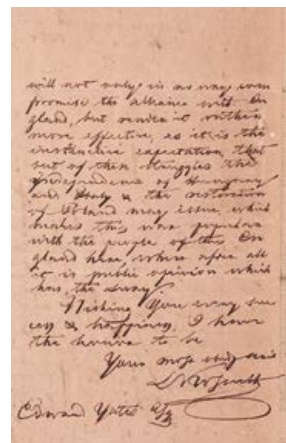 will not only in no way com
promise the alliance with En
gland, but render it within
more effective, as it is the
instinctive expectation that
out of these struggles the
independence of Hungary
and Italy & the restoration
of Poland may issue, which
makes this war popular
with the people of this En
gland here, where after all
it is public opinion which
has the sway.
Wishing you every suc
cess & happiness, I have
the honour to be
Yours most
Edward Yates